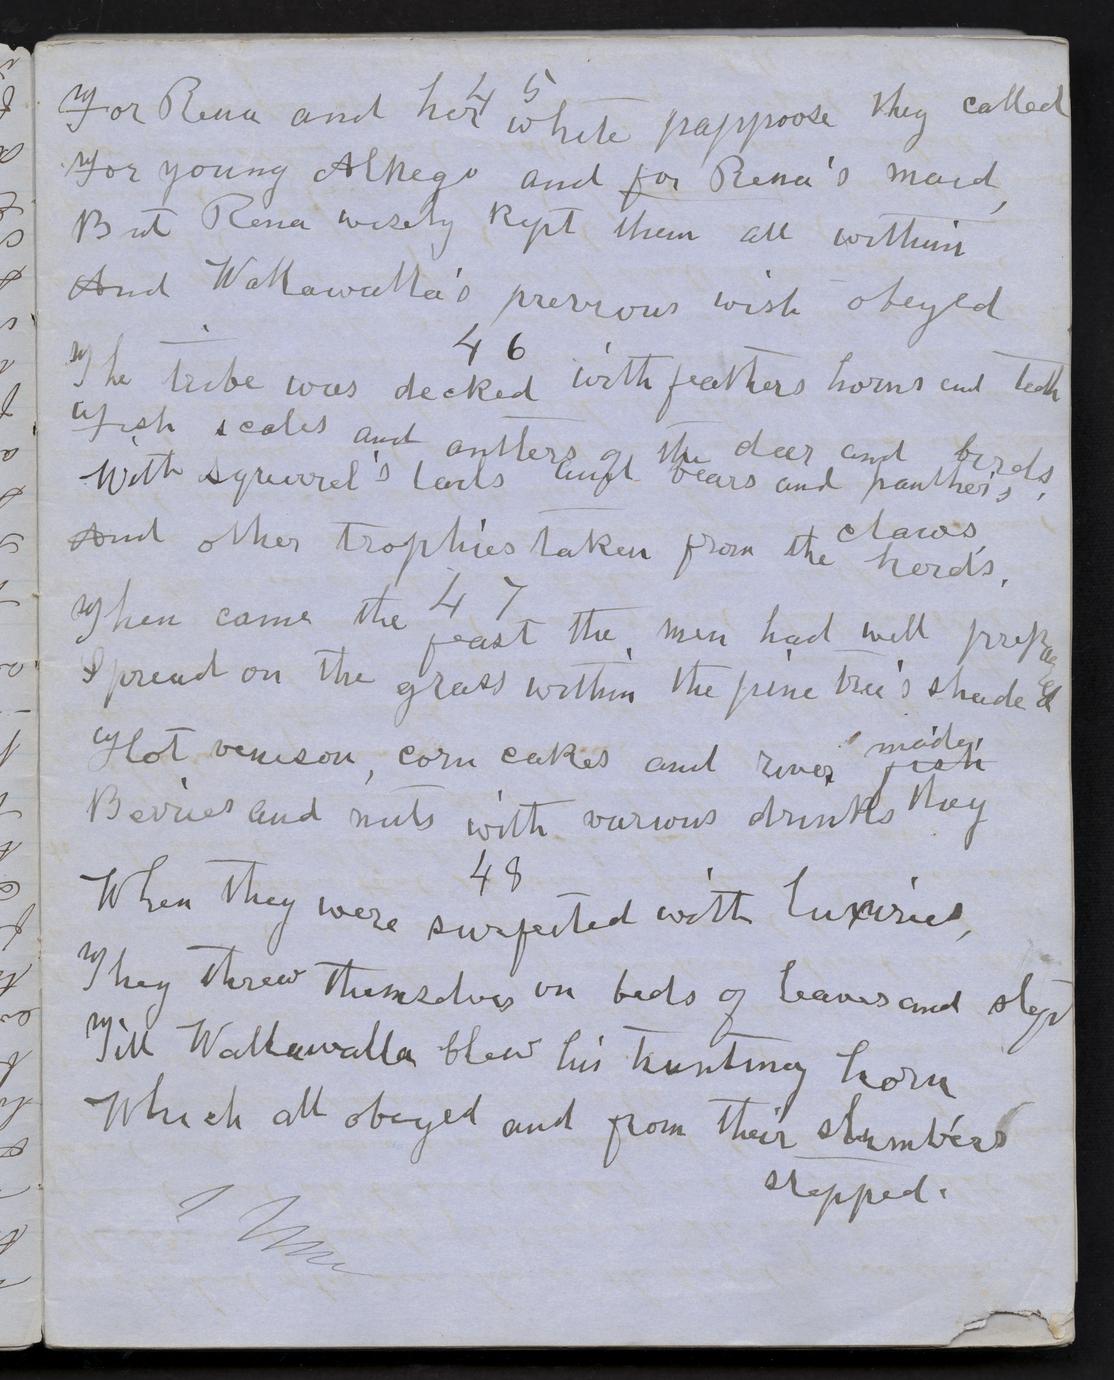 45
For Rena and her white pappoose they called
For young Alkego and for Rena's maid,
But Rena wisely kept them all within
And Wallawalla's previous wish obeyed
46
The tribe was decked with feathers horns and teeth
Fish scales and antlers of the deer and birds,
With squirrel's tails and bears and panther's claws,
And other trophies taken from the herds.
47
Then came the feast the men had well prepared
Spread on the grass within the pine tree's shade
Hot venison, corn cakes and river fish
Berries and nuts with various drinks they made.
48
When they were surfeited with luxuries,
They threw themselves on beds of leaves and slept
Till Wallawalla blew his hunting horn
Which all obeyed and from their slumbers stepped.